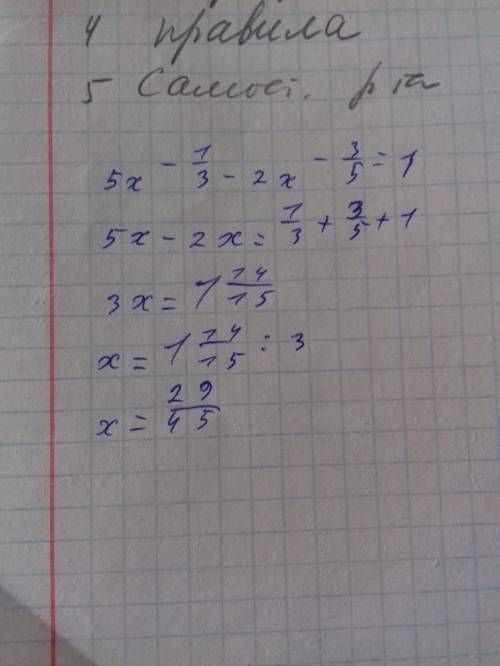 4 правила
5 Самост. р та
5x - 1/3 - 2x - 3/5 = 1
5x - 2x = 1/3 + 3/5 + 1
3x = 1 14/15
x = 1 14/15 : 3
x = 29/45